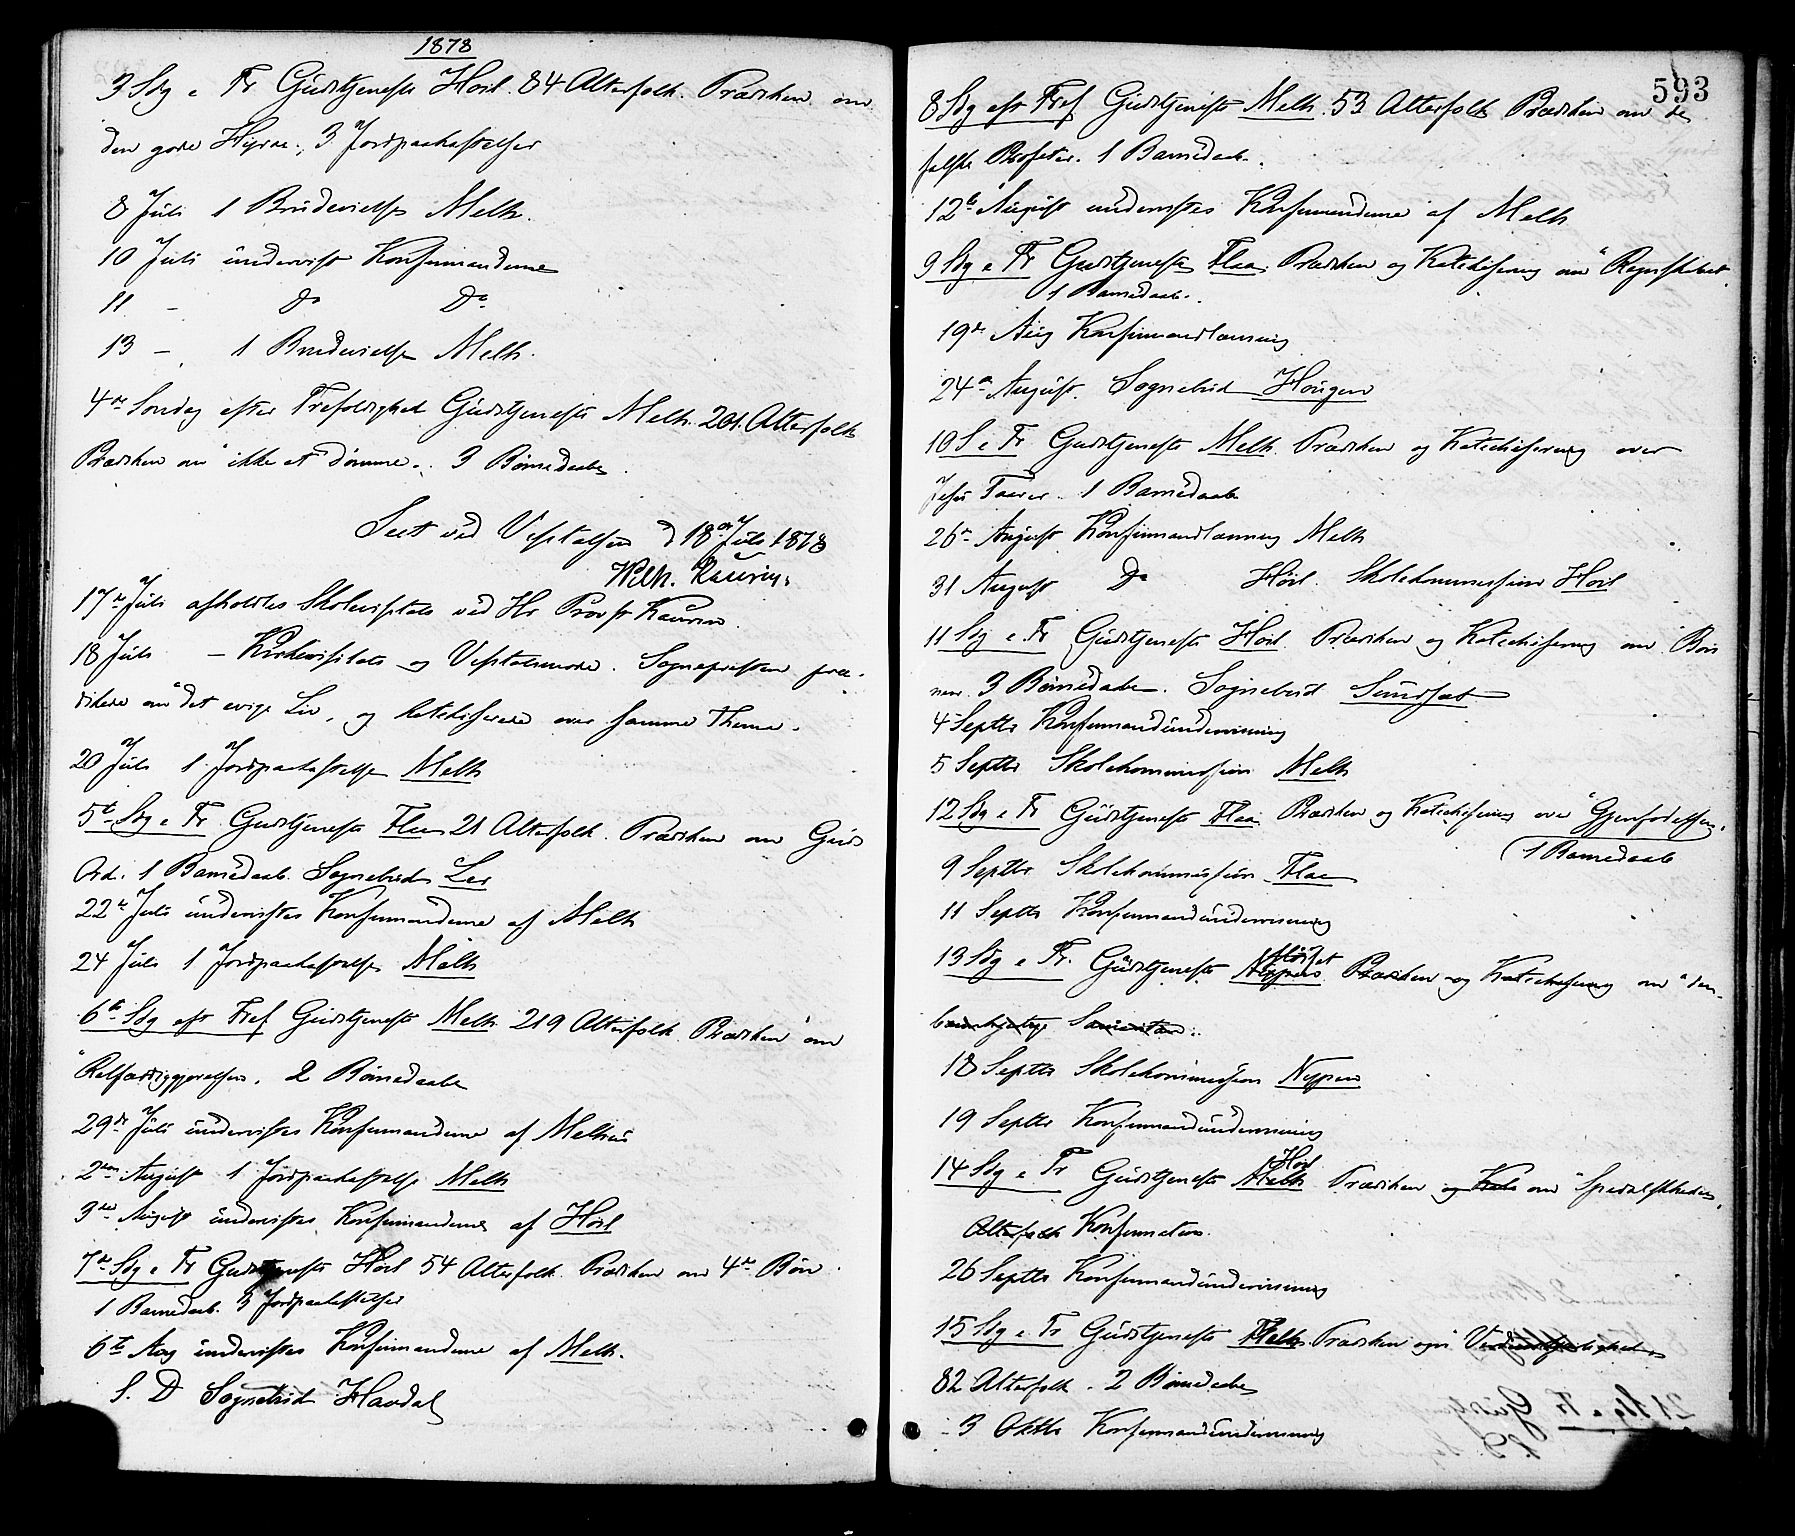 1878
3 Sdg e Tr Gudstjeneste Höil. 84 Alterfolk. Prædiken om
den gode Hyrde. 3 Jordpaakastelser
8 Juli 1 Brudevielse Melh.
10 Juli undervist Konfirmanderne
11 - do Do
13 - 1 Brudevielse Melh.
4de Söndag efter Trefoldighed Gudstjeneste Melh. 201 Alterfolk
Prædiken om "ikke at dömme". 3 Börnedaabe
Seet ved Visitatsen d 18de Juli 1878
Wilh. Kaurin.
17de Juli afholdtes Skolevisitats ved Hr Provst Kaurin.
18 Juli - Kirkevisitats og Visitatsmöde. Sognepresten præ-
dikede om "det evige Liv, og katekiserede over samme Thema.
20 Juli 1 Jordpaakastelse Melh
5te Sdg e Tr Gudstjeneste Flaa 21 Alterfolk. Prædiken om Guds
Ord. 1 Barnedaab. Sognebud Ler
22de Juli undervistes Konfirmanderne af Melh
24 Juli 1 Jordpaakastelse Melh
6te Sdg eft Tref Gudstjeneste Melh 219 Alterfolk. Prædiken om
"Retfærdiggjörelsen. 2 Börnedaabe
29de Juli undervistes Konfirmanderne af Melhus
2den August 1 Jordpaakastelse Melh
3die August undervistes Konfirmanderne af Höil
7de Sdg e Tr Gudstjeneste Höil 54 Alterfolk. Prædiken om 4de Bön.
1 Barnedaab. 3 Jordpaakastelser
6te Aug undervistes Konfirmanderne af Melh.
S. D Sognebud Havdal
593
8 Sdg eft Tref Gudstjeneste Melh. 53 Alterfolk Prædiken om de
falske Profeter. 1 Barnedaab.
12te August undervistes Konfirmanderne af Melh
9 Sdg e Tr Gudstjeneste Flaa. Prædiken og Katekisering om "Regnskabet.
1 Barnedaab.
19de Aug Konfirmandlæsning
24de August. Sognebud Hougen
10 S e Tr Gudstjeneste Melh. Prædiken og Katekisering over
Jesu Taarer. 1 Barnedaab
26de August Konfirmandlæsning Melh
31 August Do Höil. Skolekommission Höil
11 Sdg e Tr Gudstjeneste Höil. Prædiken og Katekisering om Bön
nen. 3 Börnedaabe. Sognebud Sundset
4 Septbr Konfirmandundervisning
5 Septbr Skolekommission Melh
12 Sdg e Tr Gudstjeneste Flaa. Prædiken og Katekisering over "Gjenfödelsen.
1 Barnedaab
9 Septbr Skolekommission Flaa
11 Septbr Konfirmandundervisning
13 Sdg e Tr. Gudstjeneste Nypan Prædiken og Katekisering om "den
barmhjertige Samaritan.
18 Septbr Skolekommission Nypan
19 Septbr Konfirmandundervisning
Höil
14 Sdg e Tr Gudstjeneste Melh Prædiken og Kate om "Spedalskheden
Alterfolk Konfirmation.
26 Septbr Konfirmandundervisning
15 Sdg e Tr Gudstjeneste Melh. Prædiken
82 Alterfolk. 2 Börnedaabe
3 Oktbr Konfirmandundervisning